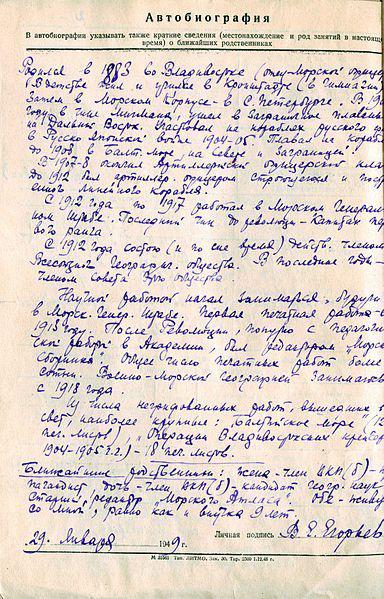 Автобиография
В автобиографии указывать также краткие сведения (местонахождение и род занятий в настоящ
время) о ближайших родственниках
Родился в 1883 во Владивостоке (отец-морской офицер
В детстве жил и учился в Кронштадте (в гимназии
Затем в Морском Корпусе в С. Петербурге. В 19
году в чине Мичмана, ушел в заграничное плаванье
на Дальний Восток. Участвовал на кораблях русского ф
в Русско-японской войне 1904-05. Плавал на кораб
до 1908 в Балт. море, на Севере и Заграницей.
В 1907-8 окончил Артиллерийский офицерский клас
до 1912 был артиллер. офицером строющегося и пост
енного линейного корабля.
С 1912 года по 1917 работал в Морском Генераль
ном Штабе. Последний чин до революции - Капитан пе
вого ранга.
С 1912 года состою (и по сие время) действ. членом
Всесоюзного Географич. общества. В последние годы -
членом совета этого общества
Научной работой начал заниматься, будучи
в Морск. Генер. Штабе. Первая печатная работа в
1913 году. После Революции, попутно с педагогич
ской работой в Академии, был редактором „Морс
Сборника". Общее число печатных работ более
сотни. Военно-Морской географией занимаюсь
с 1918 года.
Из числа работ, вышедших в
свет, наиболее крупные: Балтийское море (12
печ. листов), „Операции Владивостокских крейсер
1904-1905 г.г.) - 18 печ. листов.
Ближайшие родственники: жена - член ВКП(б) - п
пагандист, дочь - член ВКП(б) - кандидат геогр. наук
Старший редактор „Морского Атласа". Обе - живу
со мной, равно как и внучка 9 лет.
29 Января 1949 г. Личная подпись В. Е. Егорьев
Тип. ЛИТМО. Зак. 30. Тир. 2500 1.12.48 г.